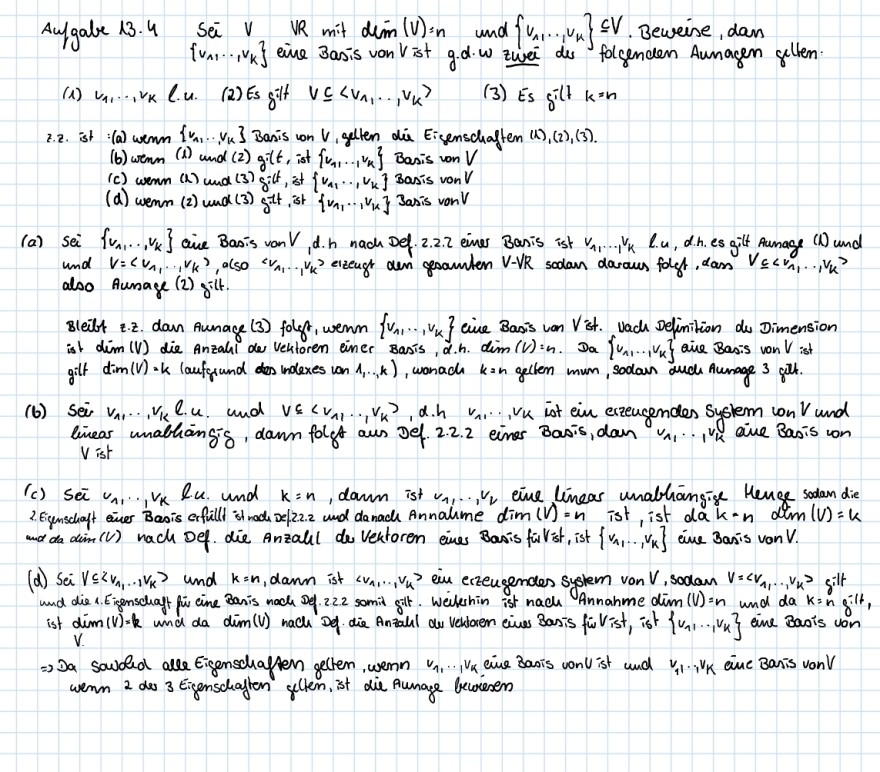 Aufgabe 13.4 Sei V VR mit dim(V)=n und {v₁,..,vₖ} ⊆V. Beweise, dass
{v₁,..,vₖ} eine Basis von V ist g.d.w zwei der folgenden Aussagen gelten.
(1) v₁,..,vₖ l.u. (2) Es gilt V ⊆ <v₁,..,vₖ> (3) Es gilt k=n
z.z. ist :(a) wenn {v₁,..,vₖ} Basis von V, gelten die Eigenschaften (1),(2),(3).
(b) wenn (1) und (2) gilt, ist {v₁,..,vₖ} Basis von V
(c) wenn (1) und (3) gilt, ist {v₁,..,vₖ} Basis von V
(d) wenn (2) und (3) gilt, ist {v₁,..,vₖ} Basis von V
(a) Sei {v₁,..,vₖ} eine Basis von V, d.h nach Def. 2.2.2 einer Basis ist v₁,..,vₖ l.u, d.h. es gilt Aussage (1) und
und V=<v₁,..,vₖ>, also <v₁,..,vₖ> erzeugt den gesamten V-VR sodass daraus folgt, dass V⊆<v₁,..,vₖ>
also Aussage (2) gilt.
Bleibt z.z. dass Aussage (3) folgt, wenn {v₁,..,vₖ} eine Basis von V ist. Nach Definition der Dimension
ist dim(V) die Anzahl der Vektoren einer Basis, d.h. dim(V)=n. Da {v₁,..,vₖ} eine Basis von V ist
gilt dim(V)=k (aufgrund des Indexes von 1,..,k), wonach k=n gelten muss, sodass auch Aussage 3 gilt.
(b) Sei v₁,..,vₖ l.u. und V⊆<v₁,..,vₖ>, d.h v₁,..,vₖ ist ein erzeugendes System von V und
linear unabhängig, dann folgt aus Def. 2.2.2 einer Basis, dass v₁,..,vₖ eine Basis von
V ist
(c) Sei v₁,..,vₖ l.u. und k=n, dann ist v₁,..,vₖ eine linear unabhängige Menge sodass die
2.Eigenschaft einer Basis erfüllt ist nach Def.2.2.2 und da nach Annahme dim(V)=n ist, ist da k=n dim(V)=k
und da dim(V) nach Def. die Anzahl der Vektoren eines Basis für V ist, ist {v₁,..,vₖ} eine Basis von V.
(d) Sei V⊆<v₁,..,vₖ> und k=n, dann ist <v₁,..,vₖ> ein erzeugendes System von V, sodass V=<v₁,..,vₖ> gilt
und die 1.Eigenschaft für eine Basis nach Def. 2.2.2 somit gilt. Weiterhin ist nach Annahme dim(V)=n und da k=n gilt,
ist dim(V)=k und da dim(V) nach Def. die Anzahl der Vektoren einer Basis für V ist, ist {v₁,..,vₖ} eine Basis von
V.
=> Da sowohl alle Eigenschaften gelten, wenn v₁,..,vₖ eine Basis von V ist und v₁,..,vₖ eine Basis von V
wenn 2 der 3 Eigenschaften gelten, ist die Aussage bewiesen